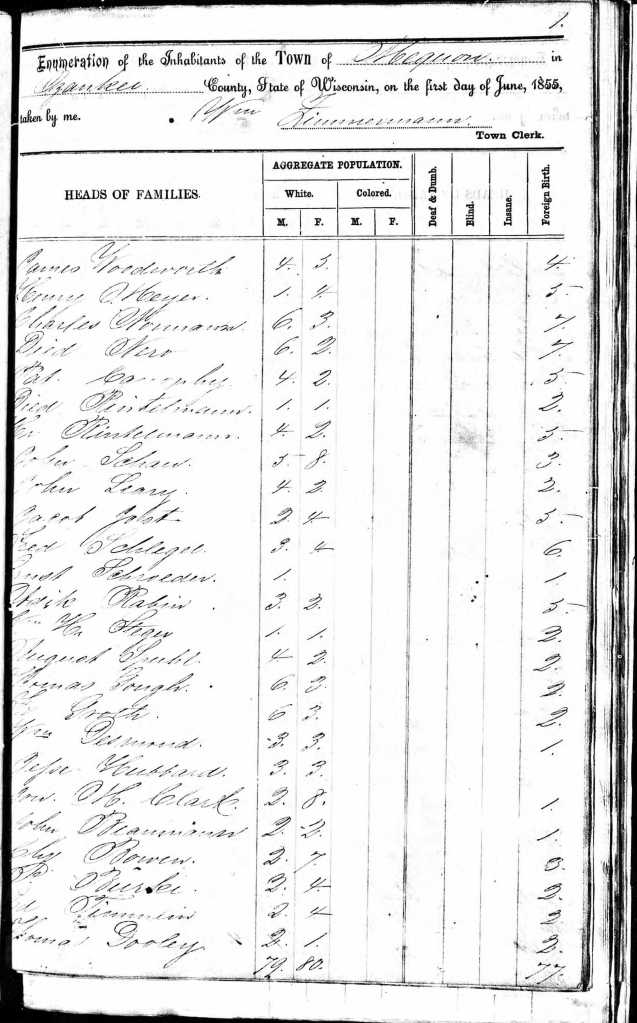 1.
Enumeration of the Inhabitants of the Town of Mequon. in
Ozaukee County, State of Wisconsin, on the first day of June, 1855,
taken by me. Wm Zimmermann.
Town Clerk.
HEADS OF FAMILIES. AGGREGATE POPULATION. Deaf & Dumb. Blind. Insane. Foreign Birth.
White. Colored.
M. F. M. F.
James Woodworth 4. 3. 4.
Henry Meyer. 1. 4. 5
Charles Normann 6. 3. 7.
Died 6. 2. 7
Pat. 4. 2. 5
Died Rintelmann. 1. 1. 2.
Rintelmann. 4. 2. 5.
John 5 8. 3.
John Leary. 4. 2. 2.
Jacob Jobst 2. 4. 5
Fred Schlegel 3. 4 6.
Ernst Schroeder. 1. 1
Rabin 3. 2. 5
H. Steger 1. 1. 2.
August 4 2. 2.
Thomas Gough. 6. 3. 2.
Groth. 6 3. 2.
Wm Desmond. 3. 3. 1.
Jesse Hubbard. 3. 3.
Jon. M. Clark. 2. 8. 1.
John Beaumann 2. 2. 1.
Bowen. 2. 7.
Burke. 2. 4 2.
Timmlin 2. 4 2.
Thomas Dooley 2. 1. 2.
79. 80. 77.